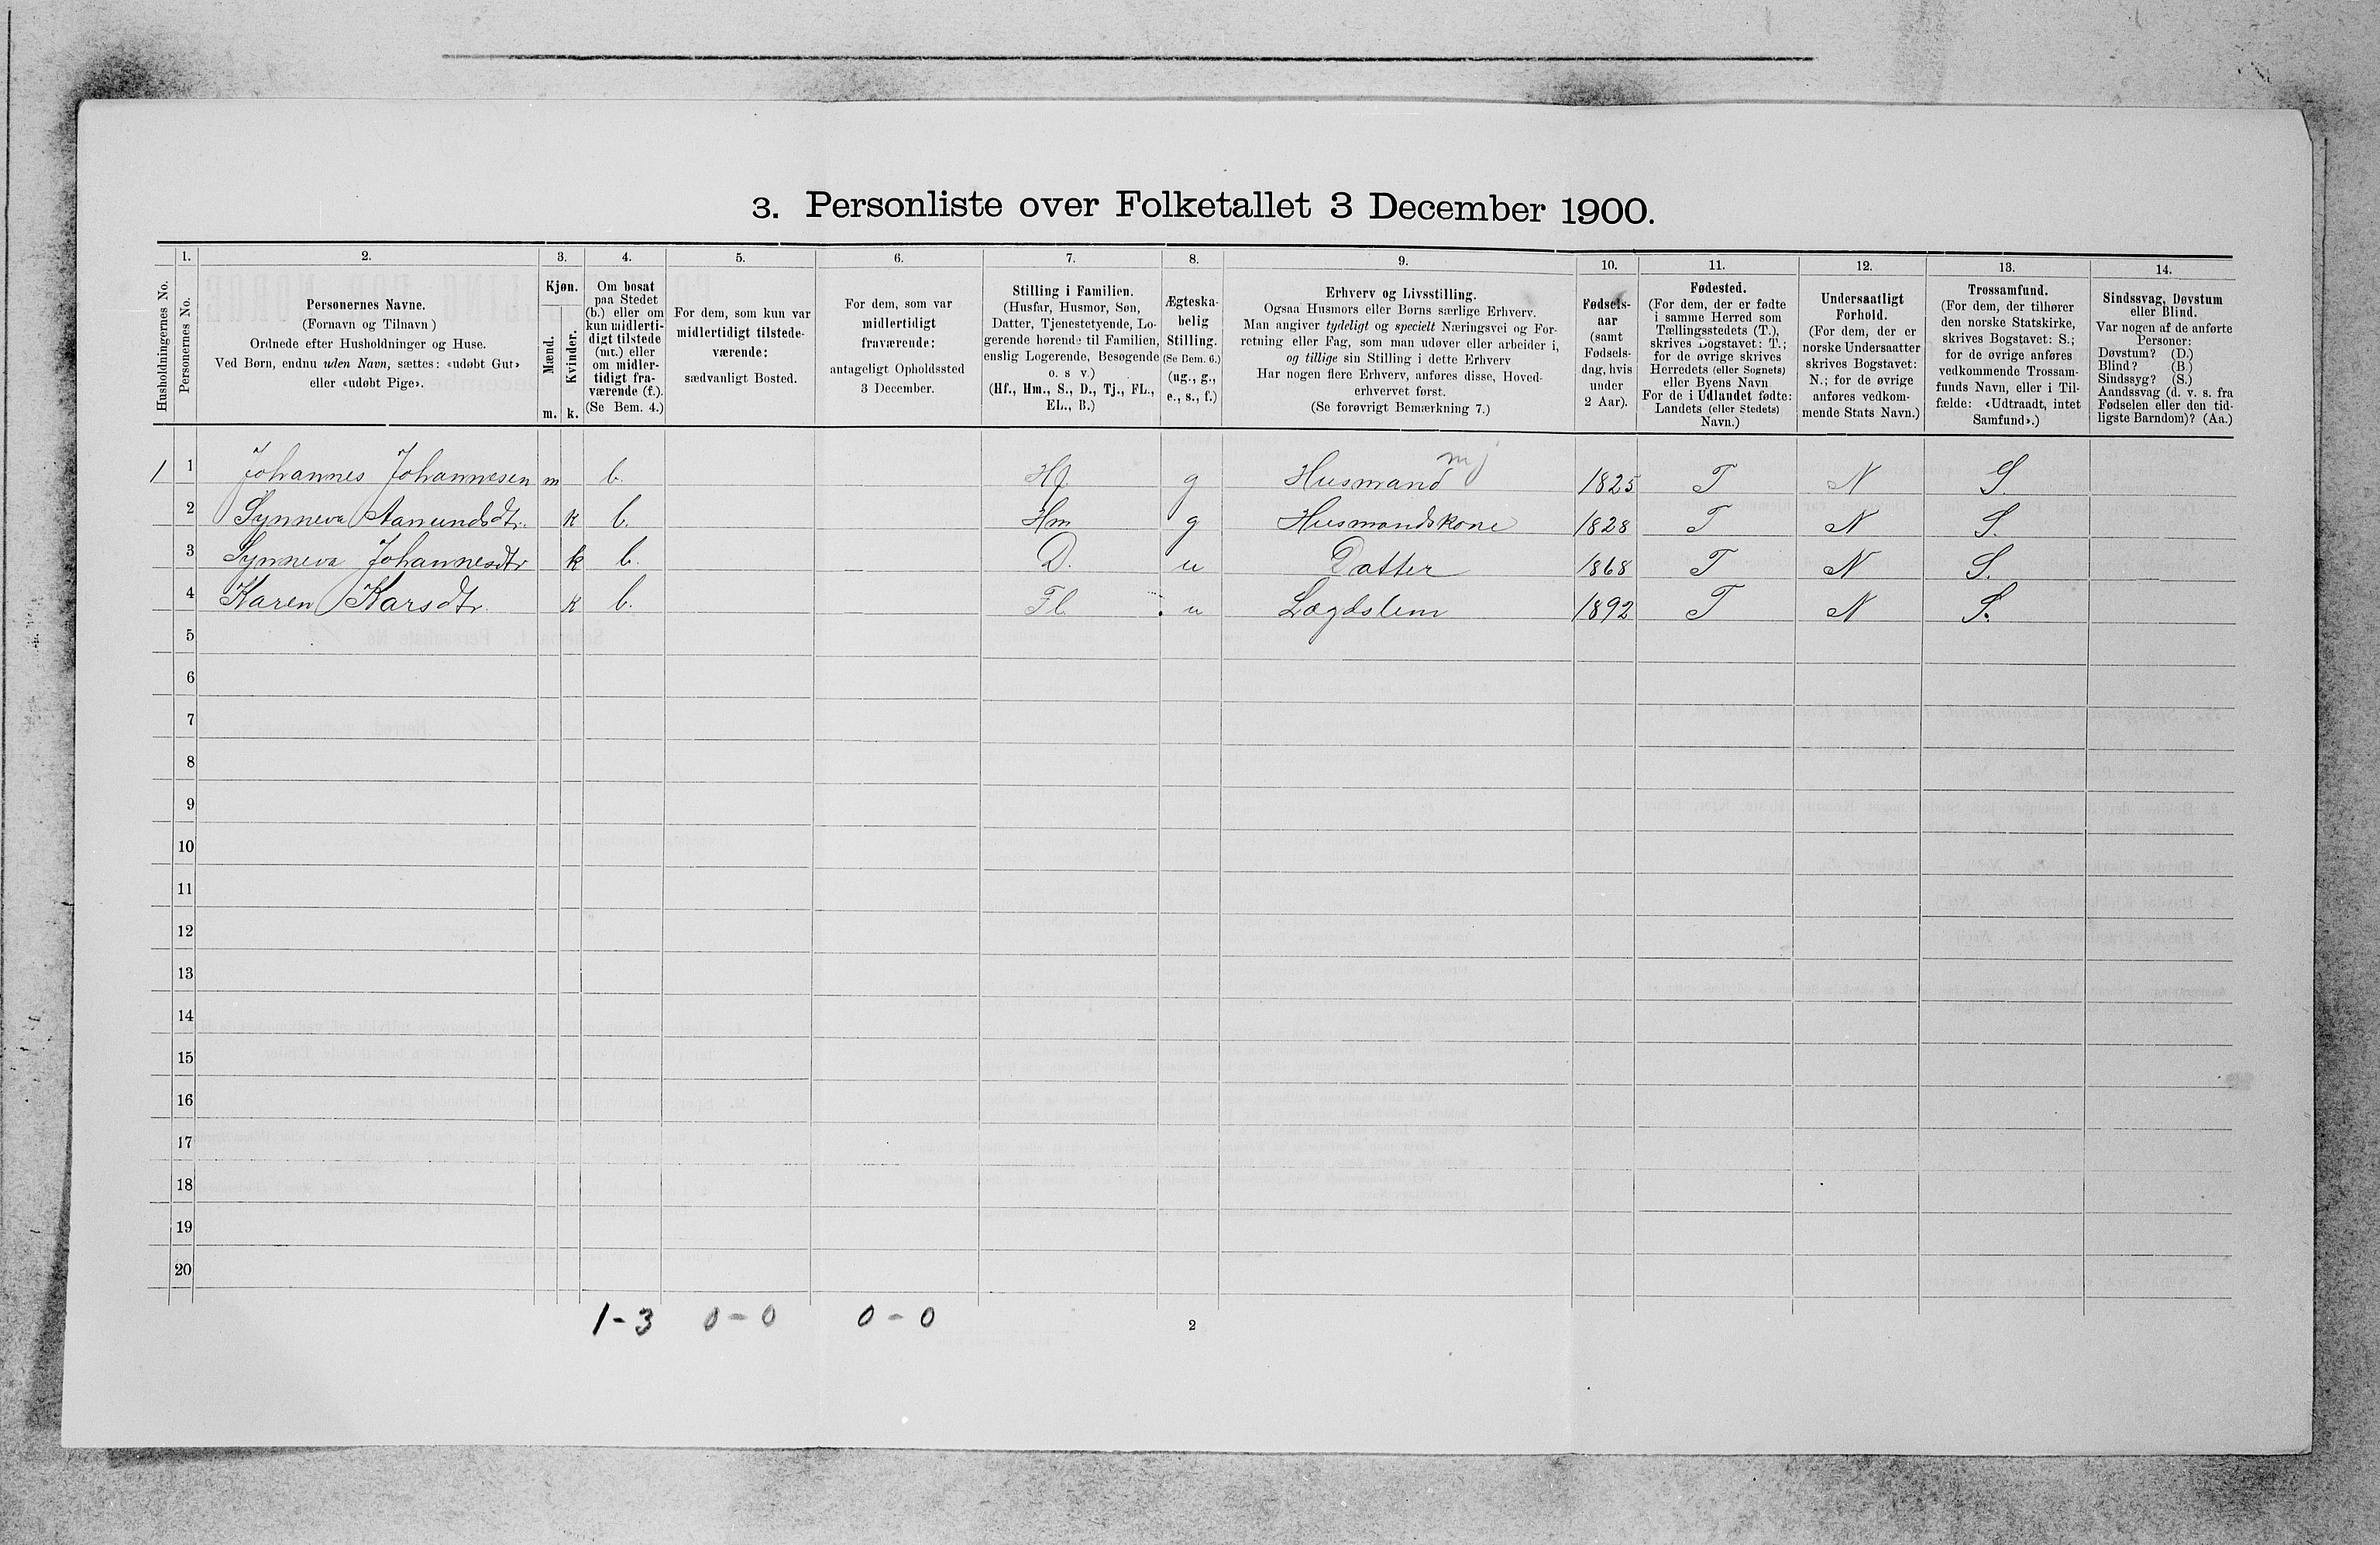 3. Personliste over Folketallet 3 December 1900.
1. 2. 3. 4. 5. 6. 7. 8. 9. 10. 11. 12. 13. 14.
Husholdningernes No.
Personernes No.
Personernes Navne.
(Fornavn og Tilnavn)
Ordnede efter Husholdninger og Huse.
Ved Børn, endnu uden Navn, sættes: «udøbt Gut»
eller «udøbt Pige».
Kjøn.
Mænd.
Kvinder.
m. k.
Om bosat
paa Stedet
(b.) eller om
kun midlerti-
digt tilstede
(mt.) eller
om midler-
tidigt fra-
værende (f.).
(Se Bem. 4.)
For dem, som kun var
midlertidigt tilstede-
værende:
sædvanligt Bosted.
For dem, som var
midlertidigt
fraværende:
antageligt Opholdssted
3 December.
Stilling i Familien.
(Husfar, Husmor, Søn,
Datter, Tjenestetyende, Lo-
gerende hørende til Familien,
enslig Logerende, Besøgende
o. s v.)
(Hf., Hm., S., D., Tj., FL.,
EL., B.)
Ægteska-
belig
Stilling.
(Se Bem. 6.)
(ug., g.,
e., s., f.)
Erhverv og Livsstilling.
Ogsaa Husmors eller Børns særlige Erhverv.
Man angiver tydeligt og specielt Næringsvei og For-
retning eller Fag, som man udøver eller arbeider i,
og tillige sin Stilling i dette Erhverv
Har nogen flere Erhverv, anføres disse, Hoved-
erhvervet først.
(Se forøvrigt Bemærkning 7.)
Fødsels-
aar
(samt
Fødsels-
dag, hvis
under
2 Aar).
Fødested.
(For dem, der er fødte
i samme Herred som
Tællingsstedets (T.),
skrives Bogstavet: T.;
for de øvrige skrives
Herredets (eller Sognets)
eller Byens Navn
For de i Udlandet fødte:
Landets (eller Stedets)
Navn.)
Undersaatligt
Forhold.
(For dem, der er
norske Undersaatter
skrives Bogstavet:
N.; for de øvrige
anføres vedkom-
mende Stats Navn.)
Trossamfund.
(For dem, der tilhører
den norske Statskirke,
skrives Bogstavet: S.;
for de øvrige anføres
vedkommende Trossam-
funds Navn, eller i Til-
fælde: «Udtraadt, intet
Samfund».)
Sindssvag, Døvstum
eller Blind.
Var nogen af de anførte
Personer:
Døvstum? (D.)
Blind? (B.)
Sindssyg? (S.)
Aandssvag (d. v. s. fra
Fødselen eller den tid-
ligste Barndom)? (Aa.)
mj
1 1 Johannes Johannesen m b. Hf g Husmand 1825 T N S.
2 Synneva Aamundsdtr. k b. Hm g Husmandskone 1828 T N S.
3 Synneva Johannesdtr k b. D. u Datter 1868 T N S.
4 Karen Karsdtr. k b. Fl. u Lægdslem 1892 T N S.
5
6
7
8
9
10
11
12
13
14
15
16
17
18
19
20
1-3 0-0 0-0
2